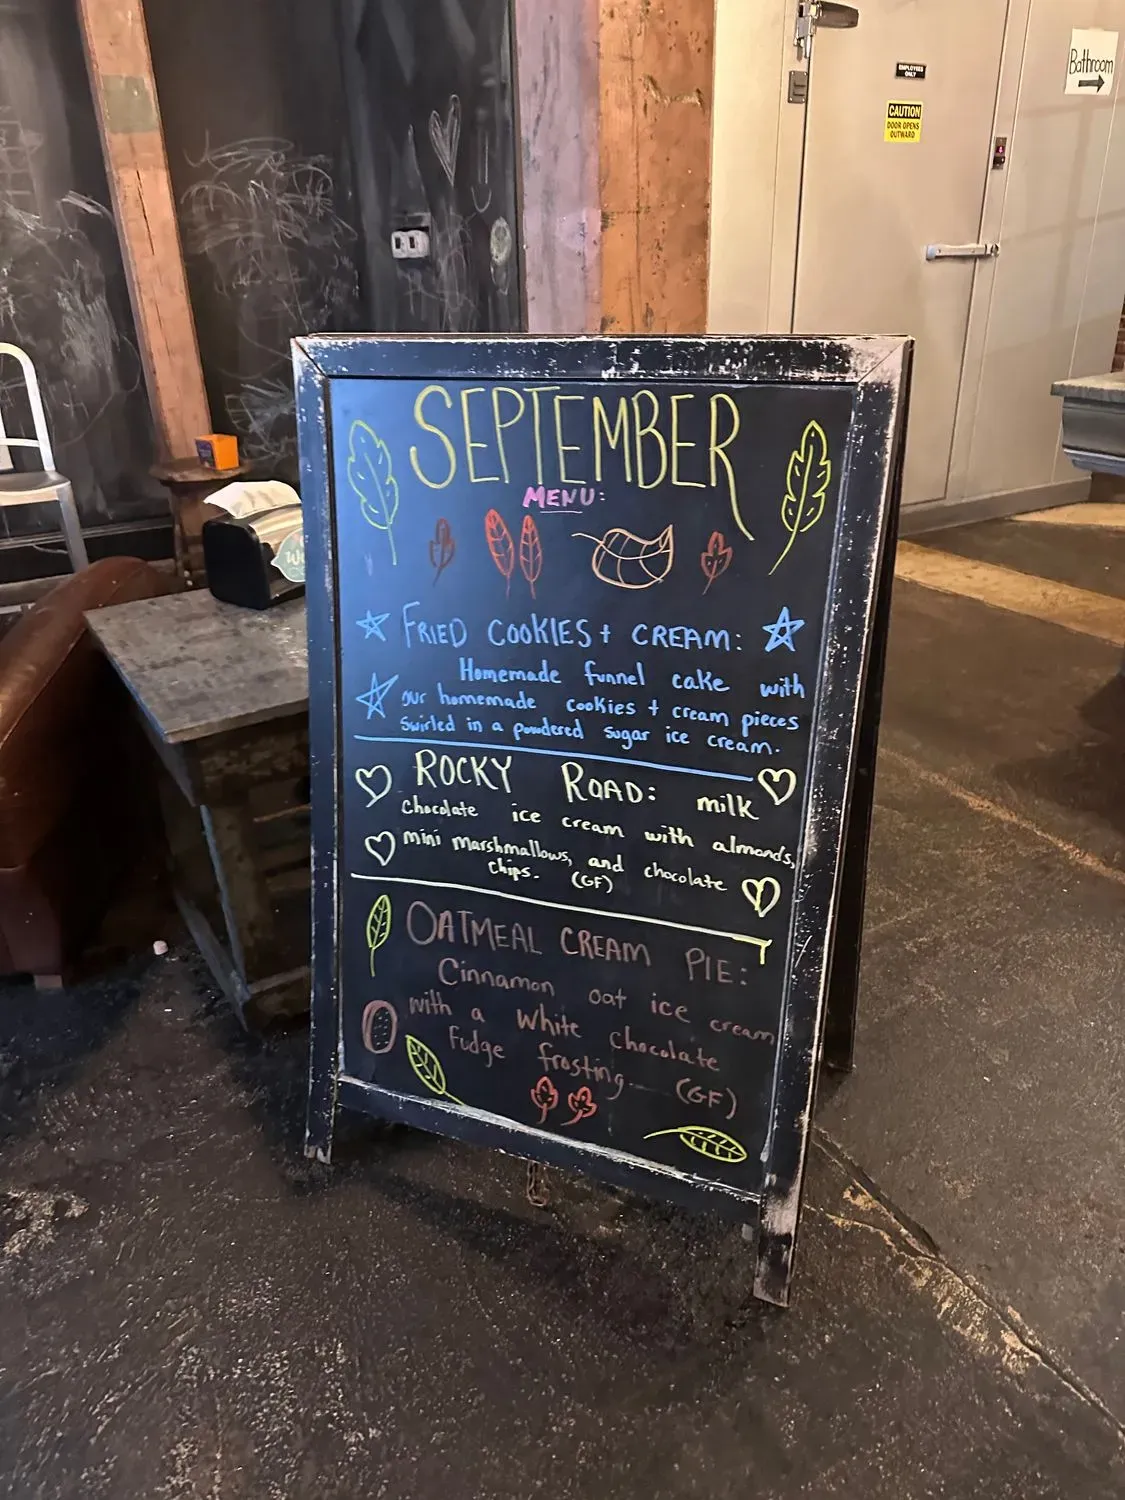 Bathroom
EMPLOYEES
ONLY
CAUTION
DOOR OPENS
OUTWARD
SEPTEMBER
MENU:
FRIED COOKIES + CREAM:
Homemade funnel cake with
our homemade cookies + cream pieces
swirled in a powdered sugar ice cream.
ROCKY ROAD: milk
chocolate ice cream with almonds,
mini marshmallows, and chocolate
chips. (GF)
OATMEAL CREAM PIE:
Cinnamon oat ice cream
with a white chocolate
fudge frosting. (GF)